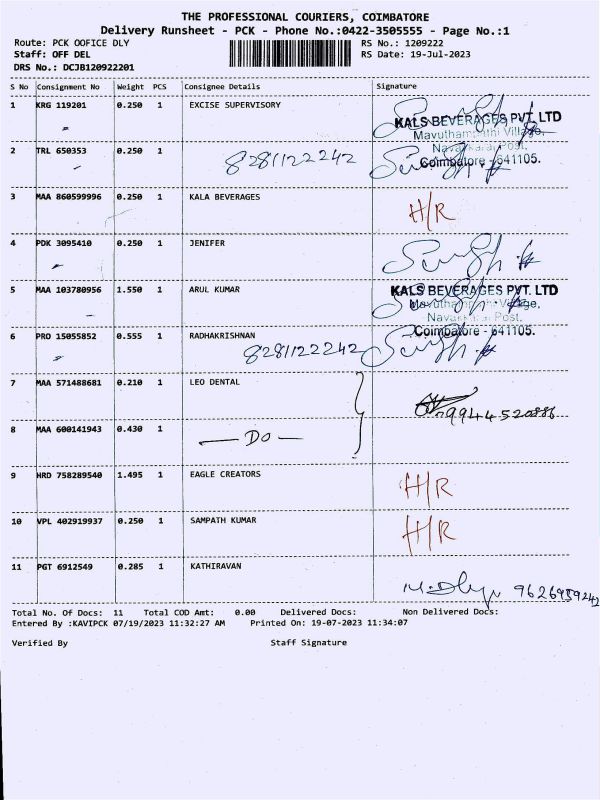 THE PROFESSIONAL COURIERS, COIMBATORE
Delivery Runsheet - PCK - Phone No.:0422-3505555 - Page No.:1
Route: PCK OOFICE DLY RS No.: 1209222
Staff: OFF DEL RS Date: 19-Jul-2023
DRS No.: DCJB120922201
S No Consignment No Weight PCS Consignee Details Signature
1 KRG 119201 0.250 1 EXCISE SUPERVISORY
KALS BEVERAGES PVT. LTD
Mavuthampathi Village,
2 TRL 650353 0.250 1 Navakkarai Post,
8281122242 Coimbatore - 641105.
3 MAA 860599996 0.250 1 KALA BEVERAGES
H/R
4 PDK 3095410 0.250 1 JENIFER
5 MAA 103780956 1.550 1 ARUL KUMAR KALS BEVERAGES PVT. LTD
Mavuthampathi Village,
Navakkarai Post,
6 PRO 15055852 0.555 1 RADHAKRISHNAN Coimbatore - 641105.
8281122242
7 MAA 571488681 0.210 1 LEO DENTAL
9944520886
8 MAA 600141943 0.430 1 — DO —
9 HRD 758289540 1.495 1 EAGLE CREATORS H/R
10 VPL 402919937 0.250 1 SAMPATH KUMAR H/R
11 PGT 6912549 0.285 1 KATHIRAVAN
9626959242
Total No. Of Docs: 11 Total COD Amt: 0.00 Delivered Docs: Non Delivered Docs:
Entered By :KAVIPCK 07/19/2023 11:32:27 AM Printed On: 19-07-2023 11:34:07
Verified By Staff Signature